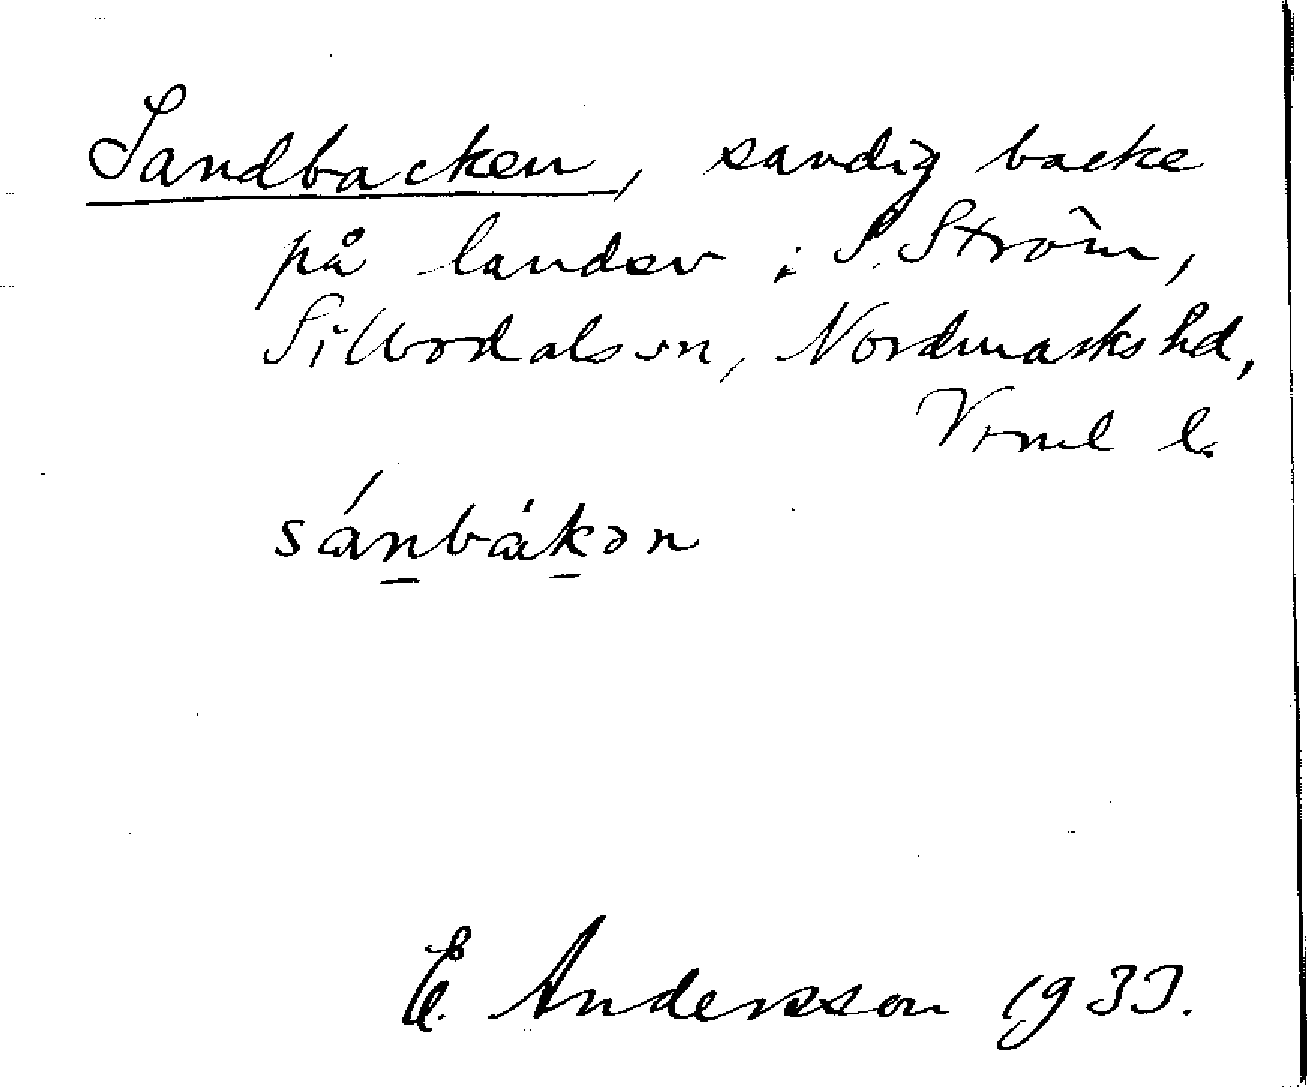 Sandbacken, sandig backe
på landsv i S. Ström,
Sillbodals sn, Nordmarks hd,
Vrml l.
sánbákən
E. Andersson 1933.